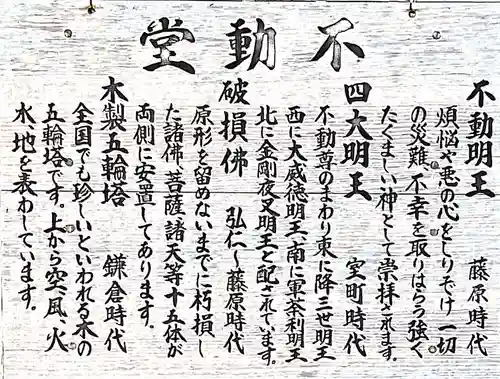 不動堂
不動明王　藤原時代
煩悩や悪の心をしりぞけ一切
の災難、不幸を取りはらう強く
たくましい神として崇拝されます。
四大明王　室町時代
不動尊のまわり東に降三世明王
西に大威徳明王、南に軍荼利明王
北に金剛夜叉明王と配されています。
破損佛　弘仁～藤原時代
原形を留めないまでに朽損し
た諸佛、菩薩、諸天等十五体が
両側に安置してあります。
木製五輪塔　鎌倉時代
全国でも珍しいといわれる木の
五輪塔です。上から空、風、火、
水、地を表わしています。